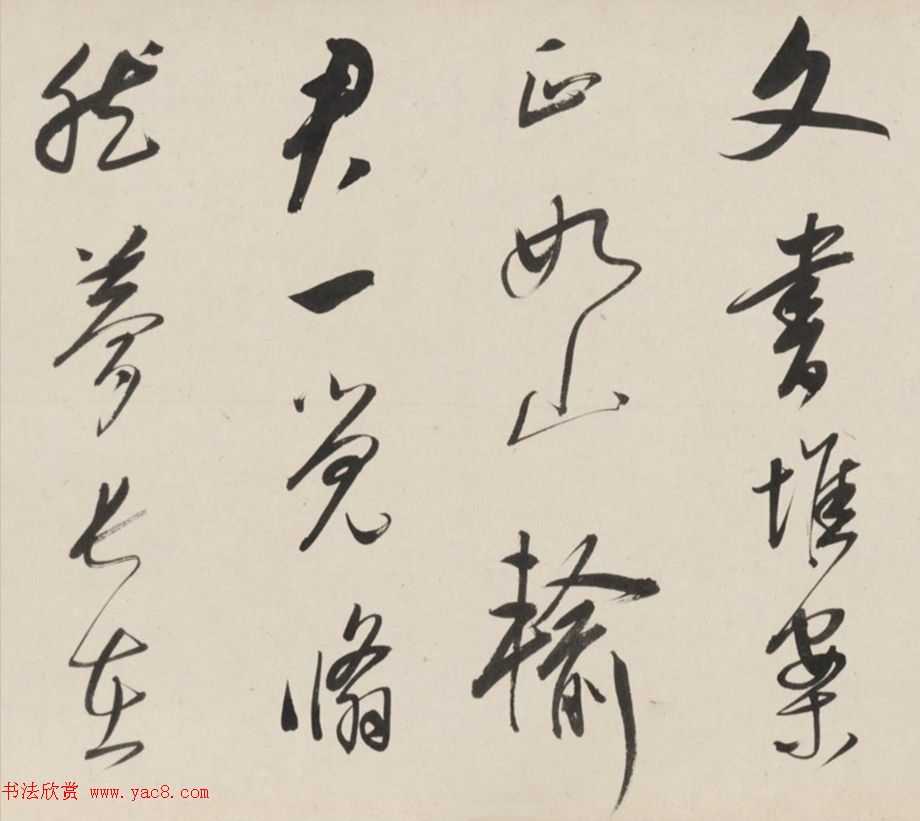 文書堆案
正如山輸
君一覺翛
然夢長在
书法欣赏 www.yac8.com